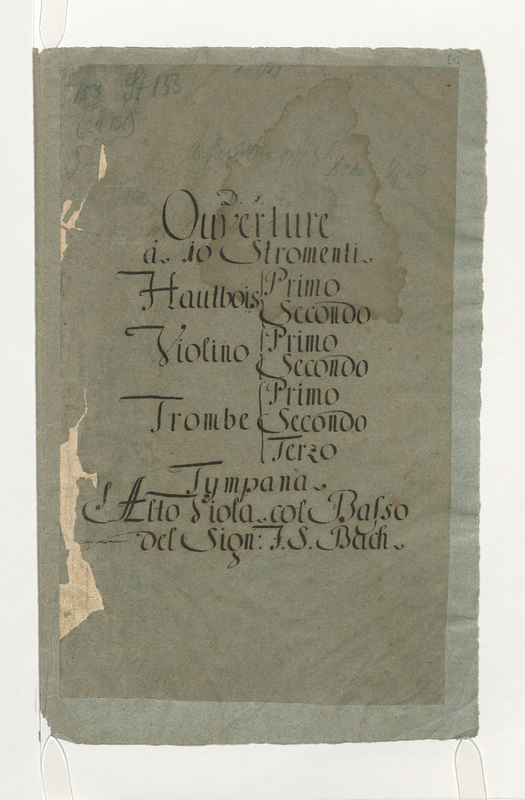 St 153
153
Ouverture
à. 10 Stromenti.
Hautbois Primo
Secondo
Violino Primo
Secondo
Trombe Primo
Secondo
Terzo
Tympana.
Alto Viola. col Baſso
del Sign: J. S. Bach.